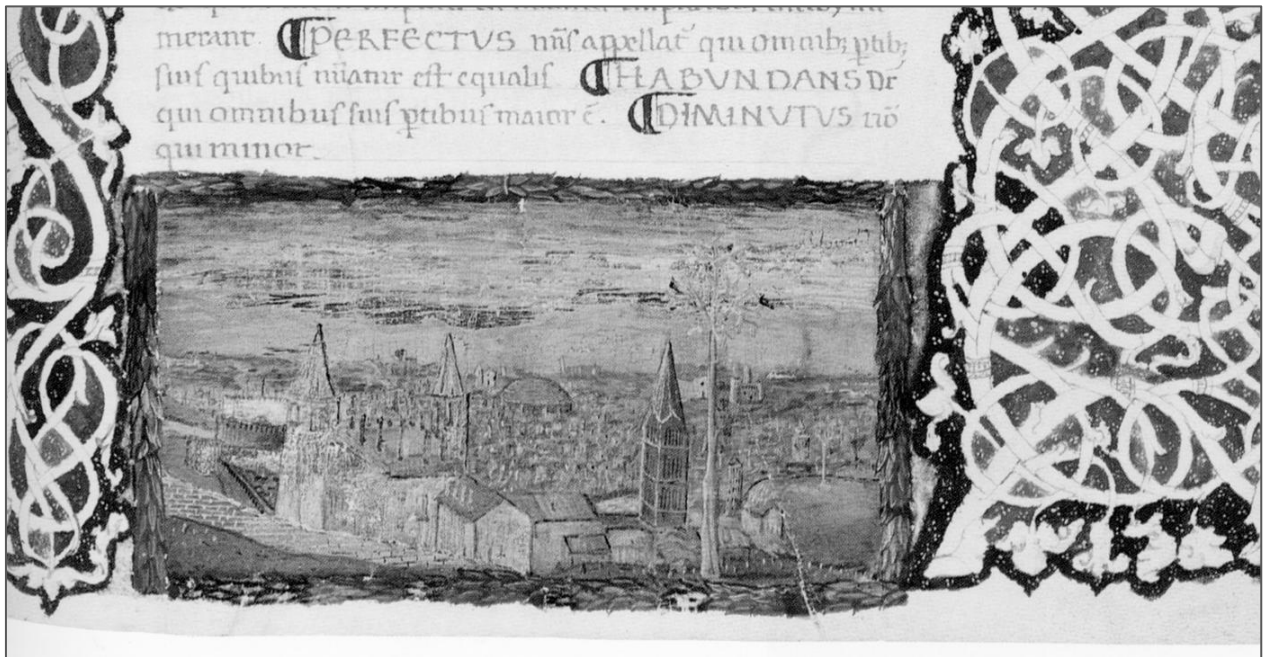 merant. ¶PERFECTUS nūs appellat̄ qui omnib; ꝑtib;
suis quibus nūatur est equalis. ¶HABUNDANS Dr̄
qui omnibus suis ꝑtibus maior ē. ¶DIMINUTUS uō
qui minor.